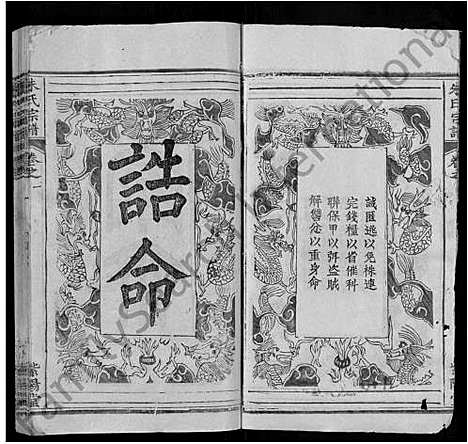 朱氏宗譜
卷之
誡匿逃以免株連
完錢糧以省催科
聯保甲以弭盜賊
解讐忿以重身命
誥命
朱氏宗譜
卷之一
紫陽堂
FamilySearch International